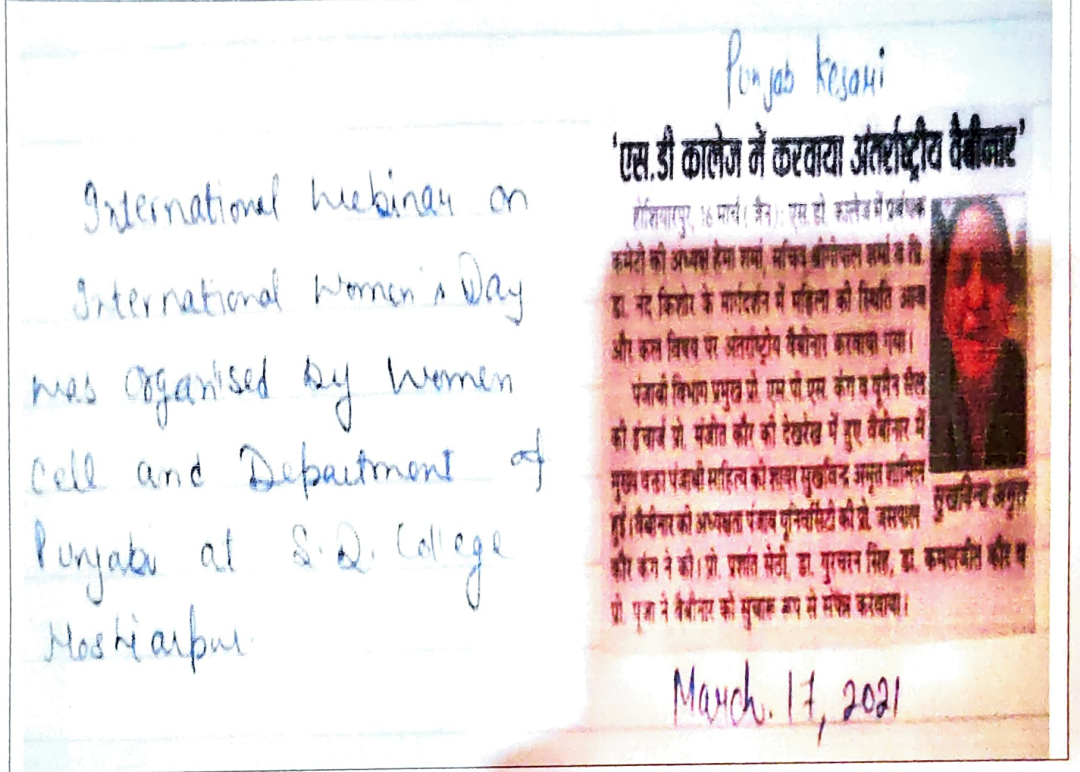 International Webinar on
International Women's Day
was organised by Women
Cell and Department of
Punjabi at S.D. College
Hoshiarpur.
Punjab Kesari
'एस.डी कालेज में करवाया अंतर्राष्ट्रीय वैबीनार'
होशियारपुर, 16 मार्च (जैन): एस.डी. कालेज में प्रबंधक
कमेटी की अध्यक्ष हेमा शर्मा, सचिव श्रीगोपाल शर्मा व प्रि.
डा. नंद किशोर के मार्गदर्शन में महिला की स्थिति आज
और कल विषय पर अंतर्राष्ट्रीय वैबीनार करवाया गया।
पंजाबी विभाग प्रमुख प्रो. एम.पी.एस. कंग व वूमैन सैल
की इंचार्ज प्रो. मंजीत कौर की देखरेख में हुए वैबीनार में
मुख्य वक्ता पंजाबी साहित्य की शायरा सुखविन्द्र अमृत शामिल
हुई। वैबीनार की अध्यक्षता पंजाब यूनिवर्सिटी की प्रो. जसपाल
कौर कंग ने की। प्रो. प्रशांत सेठी, डा. गुरचरन सिंह, डा. कमलजीत कौर व
प्रो. पूजा ने वैबीनार को सुचारू रूप से संपन्न करवाया।
सुखविन्द्र अमृत
March. 17, 2021